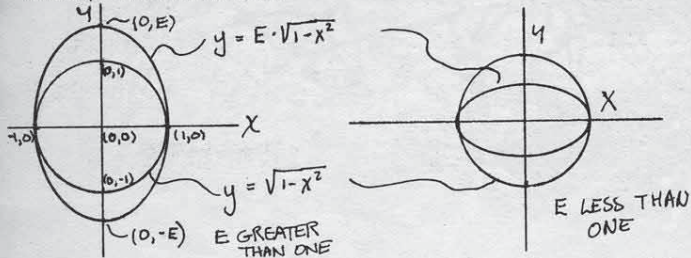 y
(0,E)
y = E·√1-x²
(0,1)
-1,0)
(0,0)
(1,0)
X
(0,-1)
y = √1-x²
(0,-E)
E GREATER
THAN ONE
y
X
E LESS THAN
ONE